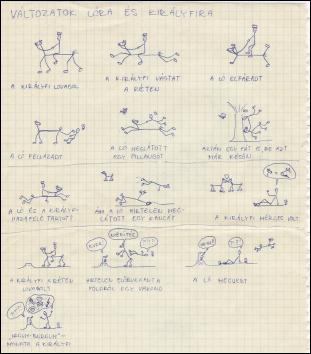 VÁLTOZATOK LÓRA ÉS KIRÁLYFIRA
A KIRÁLYFI LOVAGOL
A KIRÁLYFI VÁGTAT
A RÉTEN
A LÓ ELFÁRADT
A LÓ FELLÁZADT
A LÓ MEGLÁTOTT
EGY PILLANGÓT
AZTÁN EGY FÁT IS, DE AZT
MÁR KÉSŐN
A LÓ ÉS A KIRÁLYFI
HAZAFELÉ TARTOTT
ÁM A LÓ HIRTELEN MEG-
LÁTOTT EGY KANCÁT
A KIRÁLYFI MÉRGES VOLT
A KIRÁLYFI A RÉTEN
LOVAGOLT
HIRTELEN ELŐBUKKANT A
FÖLDBŐL EGY VAKOND
A LÓ MEGUGROTT
"IRGUM-BURGUM"-
MONDTA A KIRÁLYFI